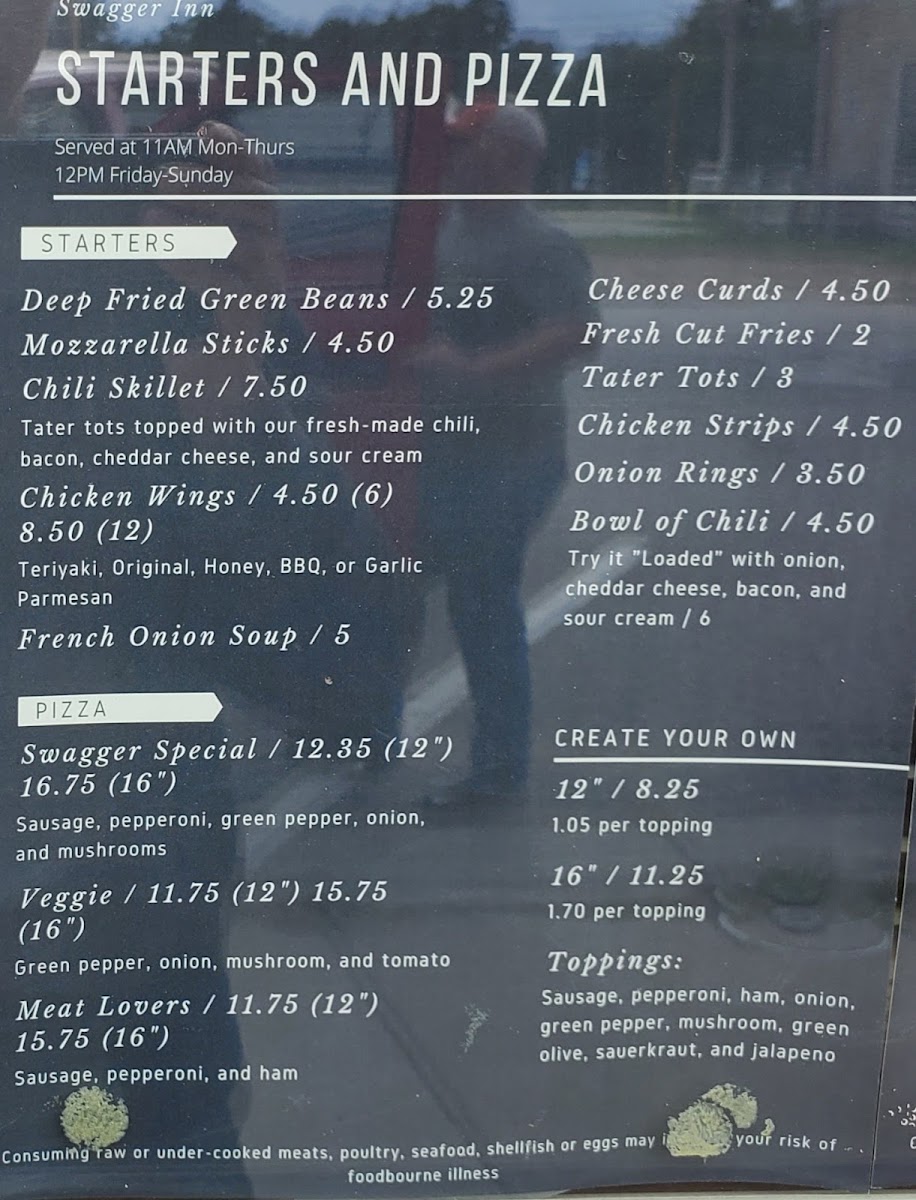 Swagger Inn
STARTERS AND PIZZA
Served at 11AM Mon-Thurs
12PM Friday-Sunday
STARTERS
Deep Fried Green Beans / 5.25
Mozzarella Sticks / 4.50
Chili Skillet / 7.50
Tater tots topped with our fresh-made chili,
bacon, cheddar cheese, and sour cream
Chicken Wings / 4.50 (6)
8.50 (12)
Teriyaki, Original, Honey, BBQ, or Garlic
Parmesan
French Onion Soup / 5
Cheese Curds / 4.50
Fresh Cut Fries / 2
Tater Tots / 3
Chicken Strips / 4.50
Onion Rings / 3.50
Bowl of Chili / 4.50
Try it "Loaded" with onion,
cheddar cheese, bacon, and
sour cream / 6
PIZZA
Swagger Special / 12.35 (12")
16.75 (16")
Sausage, pepperoni, green pepper, onion,
and mushrooms
Veggie / 11.75 (12") 15.75
(16")
Green pepper, onion, mushroom, and tomato
Meat Lovers / 11.75 (12")
15.75 (16")
Sausage, pepperoni, and ham
CREATE YOUR OWN
12" / 8.25
1.05 per topping
16" / 11.25
1.70 per topping
Toppings:
Sausage, pepperoni, ham, onion,
green pepper, mushroom, green
olive, sauerkraut, and jalapeno
Consuming raw or under-cooked meats, poultry, seafood, shellfish or eggs may your risk of
foodbourne illness